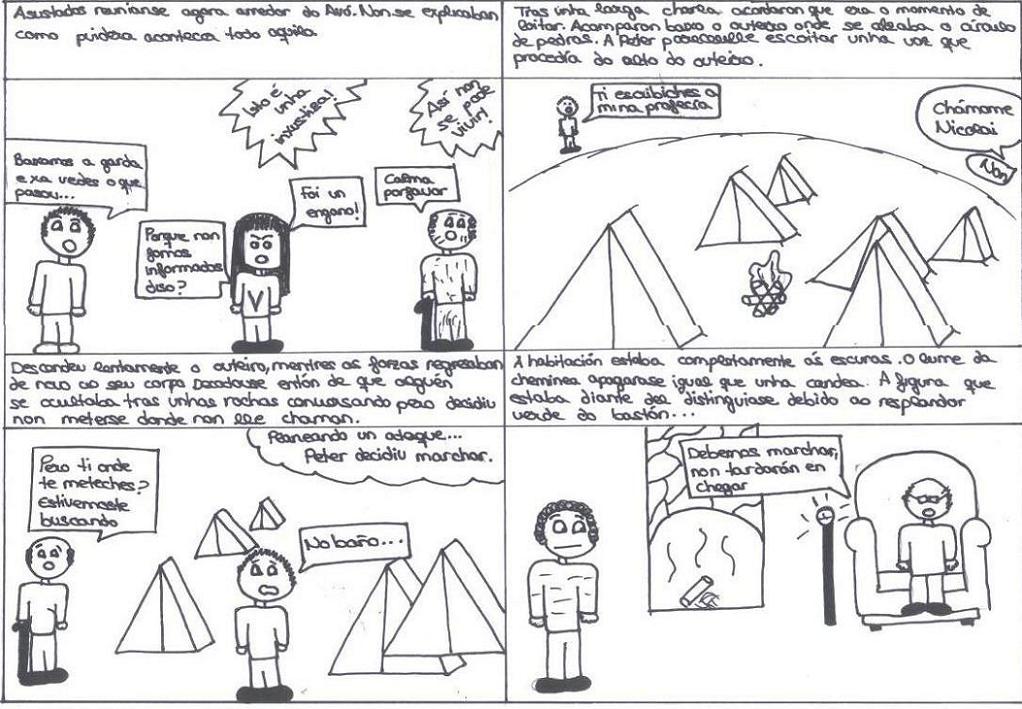 Asustados reuníanse agora arredor do Avó. Non se explicaban
como puidera acontecer todo aquilo.
Baixamos a garda
e xa vedes o que
pasou...
Isto é
unha
inxustiza!
Así non
se pode
vivir!
Porque non
fomos
informados
diso?
Foi un
engano!
Calma
porfavor
Tras unha larga charla acordaron que era o momento de
loitar. Acamparon baixo o outeiro onde se alzaba o círculo
de pedras. A Peter pareceulle escoitar unha voz que
procedía do alto do outeiro.
Ti escribiches a
miña profecía
Chámome
Nicolai
Non
Descendeu lentamente o outeiro, mentres as forzas regresaban
de novo ao seu corpo. Decatouse entón de que alguén
se ocultaba tras unhas rochas conversando pero decidiu
non meterse donde non lle chaman.
Pero ti onde
te meteches?
Estivemoste
buscando
Planeando un ataque...
Peter decidiu marchar.
No baño...
A habitación estaba completamente ás escuras. O lume da
cheminea apagarase igual que unha candea. A figura que
estaba diante del distinguíase debido ao resplandor
verde do bastón...
Debemos marchar,
non tardarán en
chegar